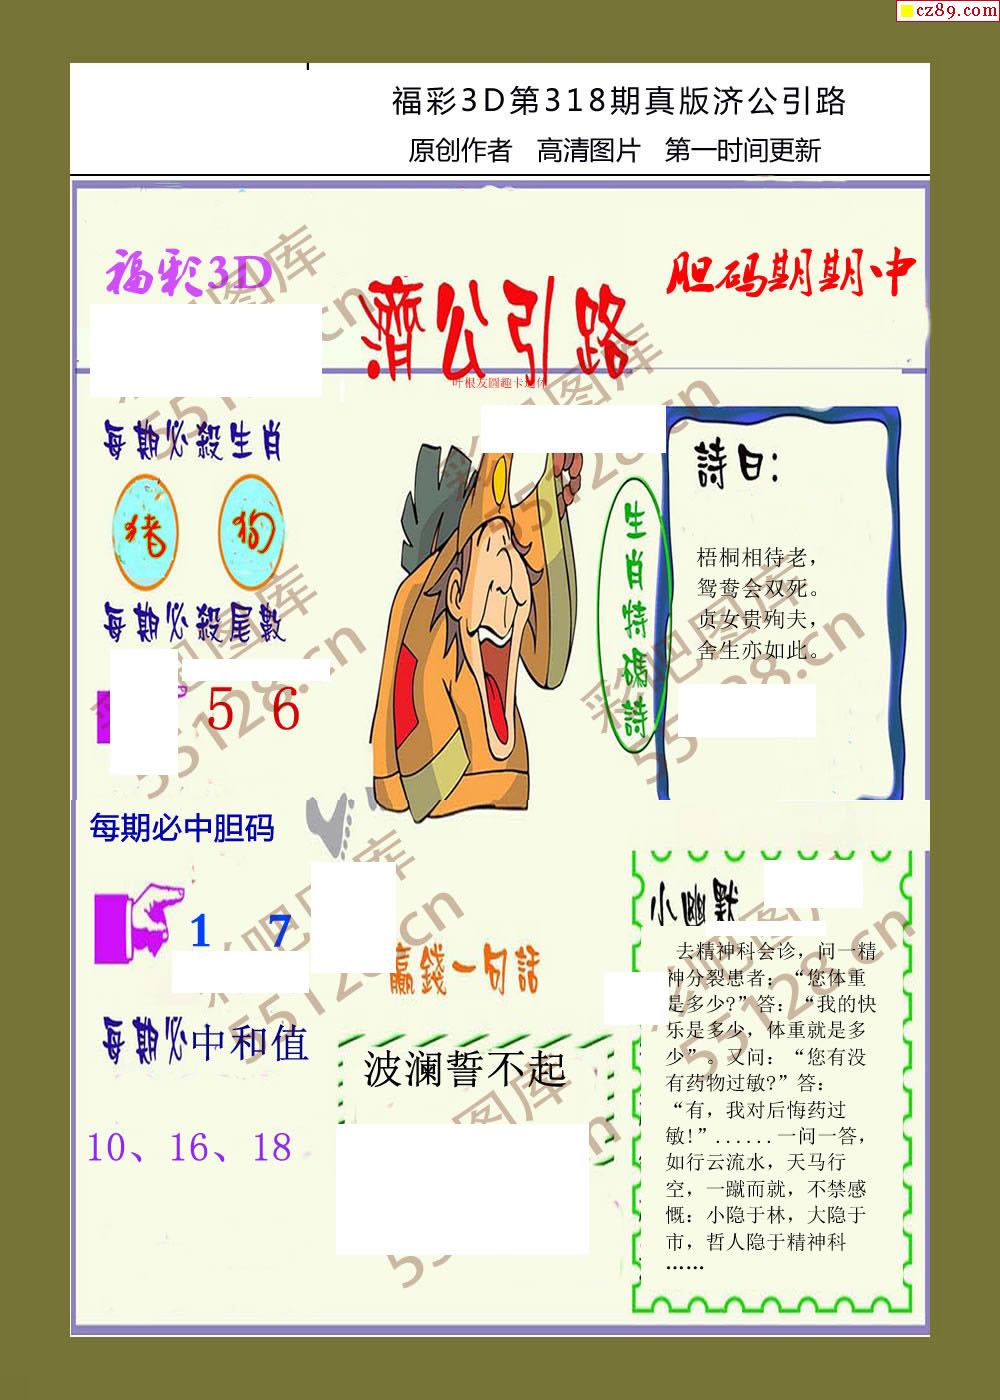 cz89.com
福彩3D第318期真版济公引路
原创作者 高清图片 第一时间更新
福彩3D
濟公引路
胆码期期中
叶根友圆趣卡通体
每期必殺生肖
猪 狗
每期必殺尾數
5 6
生肖特碼詩
詩曰：
梧桐相待老，
鸳鸯会双死。
贞女贵殉夫，
舍生亦如此。
每期必中胆码
1 7
每期必中和值
10、16、18
贏錢一句話
波澜誓不起
小幽默
去精神科会诊，问一精
神分裂患者；“您体重
是多少?”答：“我的快
乐是多少，体重就是多
少”。又问：“您有没
有药物过敏?”答：
“有，我对后悔药过
敏!”......一问一答，
如行云流水，天马行
空，一蹴而就，不禁感
慨：小隐于林，大隐于
市，哲人隐于精神科
……
彩吧图库
55128.cn
彩吧图库
55128.cn
彩吧图库
55128.cn
彩吧图库
55128.cn